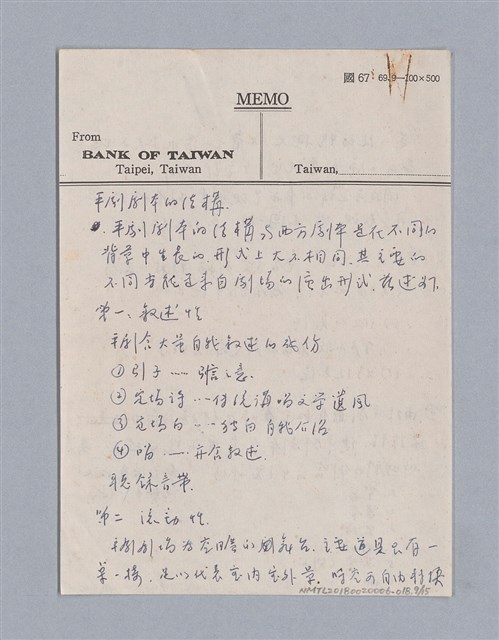 國 67 69.9—100×500
MEMO
From
BANK OF TAIWAN
Taipei, Taiwan
Taiwan,
平劇劇本的結構.
平劇劇本的結構与西方劇本是在不同的
背景中生長的.形式上大不相同.其主要的
不同 來自劇場的演出形式.茲述如下.
第一、敘述性
平劇含大量自我敘述的成份
① 引子……
② 定場詩…传统 文学遺風
③ 定場白…独白自我介绍
④ 唱……亦含敘述.
聽錄音帶.
第二 流動性.
平劇劇場為 的國舞台.主要道具只有一
桌一椅.足以代表室内室外景.時空可自由转换
NMTL20180020006-018.9/15